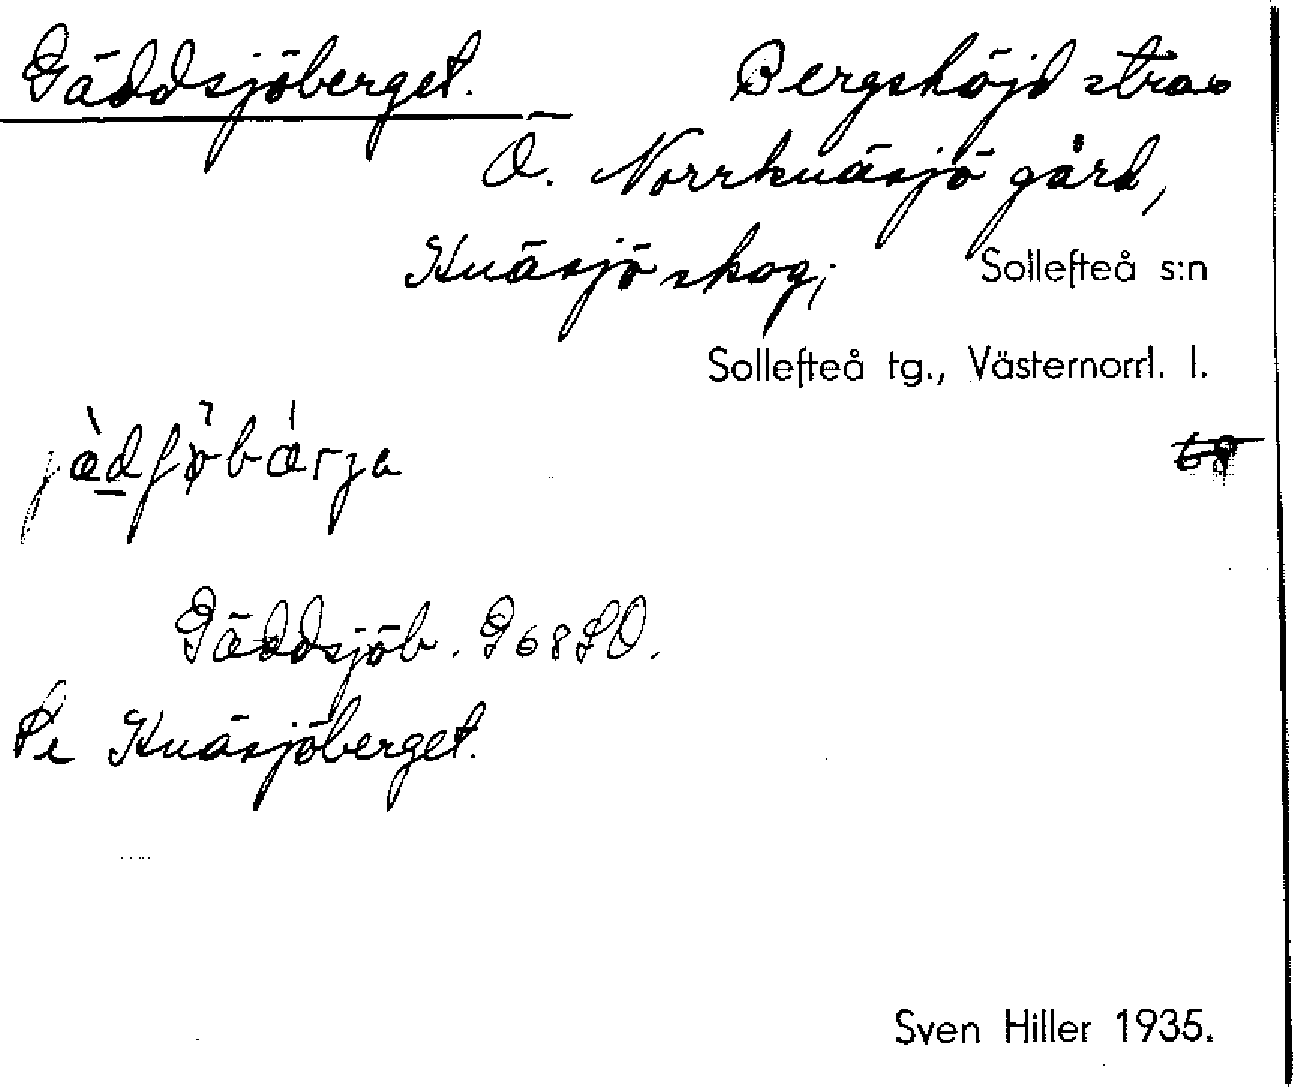 Gäddsjöberget. Bergshöjd strax
Ö. Norrknäsjö gård,
Knäsjö skog; Sollefteå s:n
Sollefteå tg., Västernorrl. l.
Gäddsjöb. G68SO.
Se Knäsjöberget.
Sven Hiller 1935.